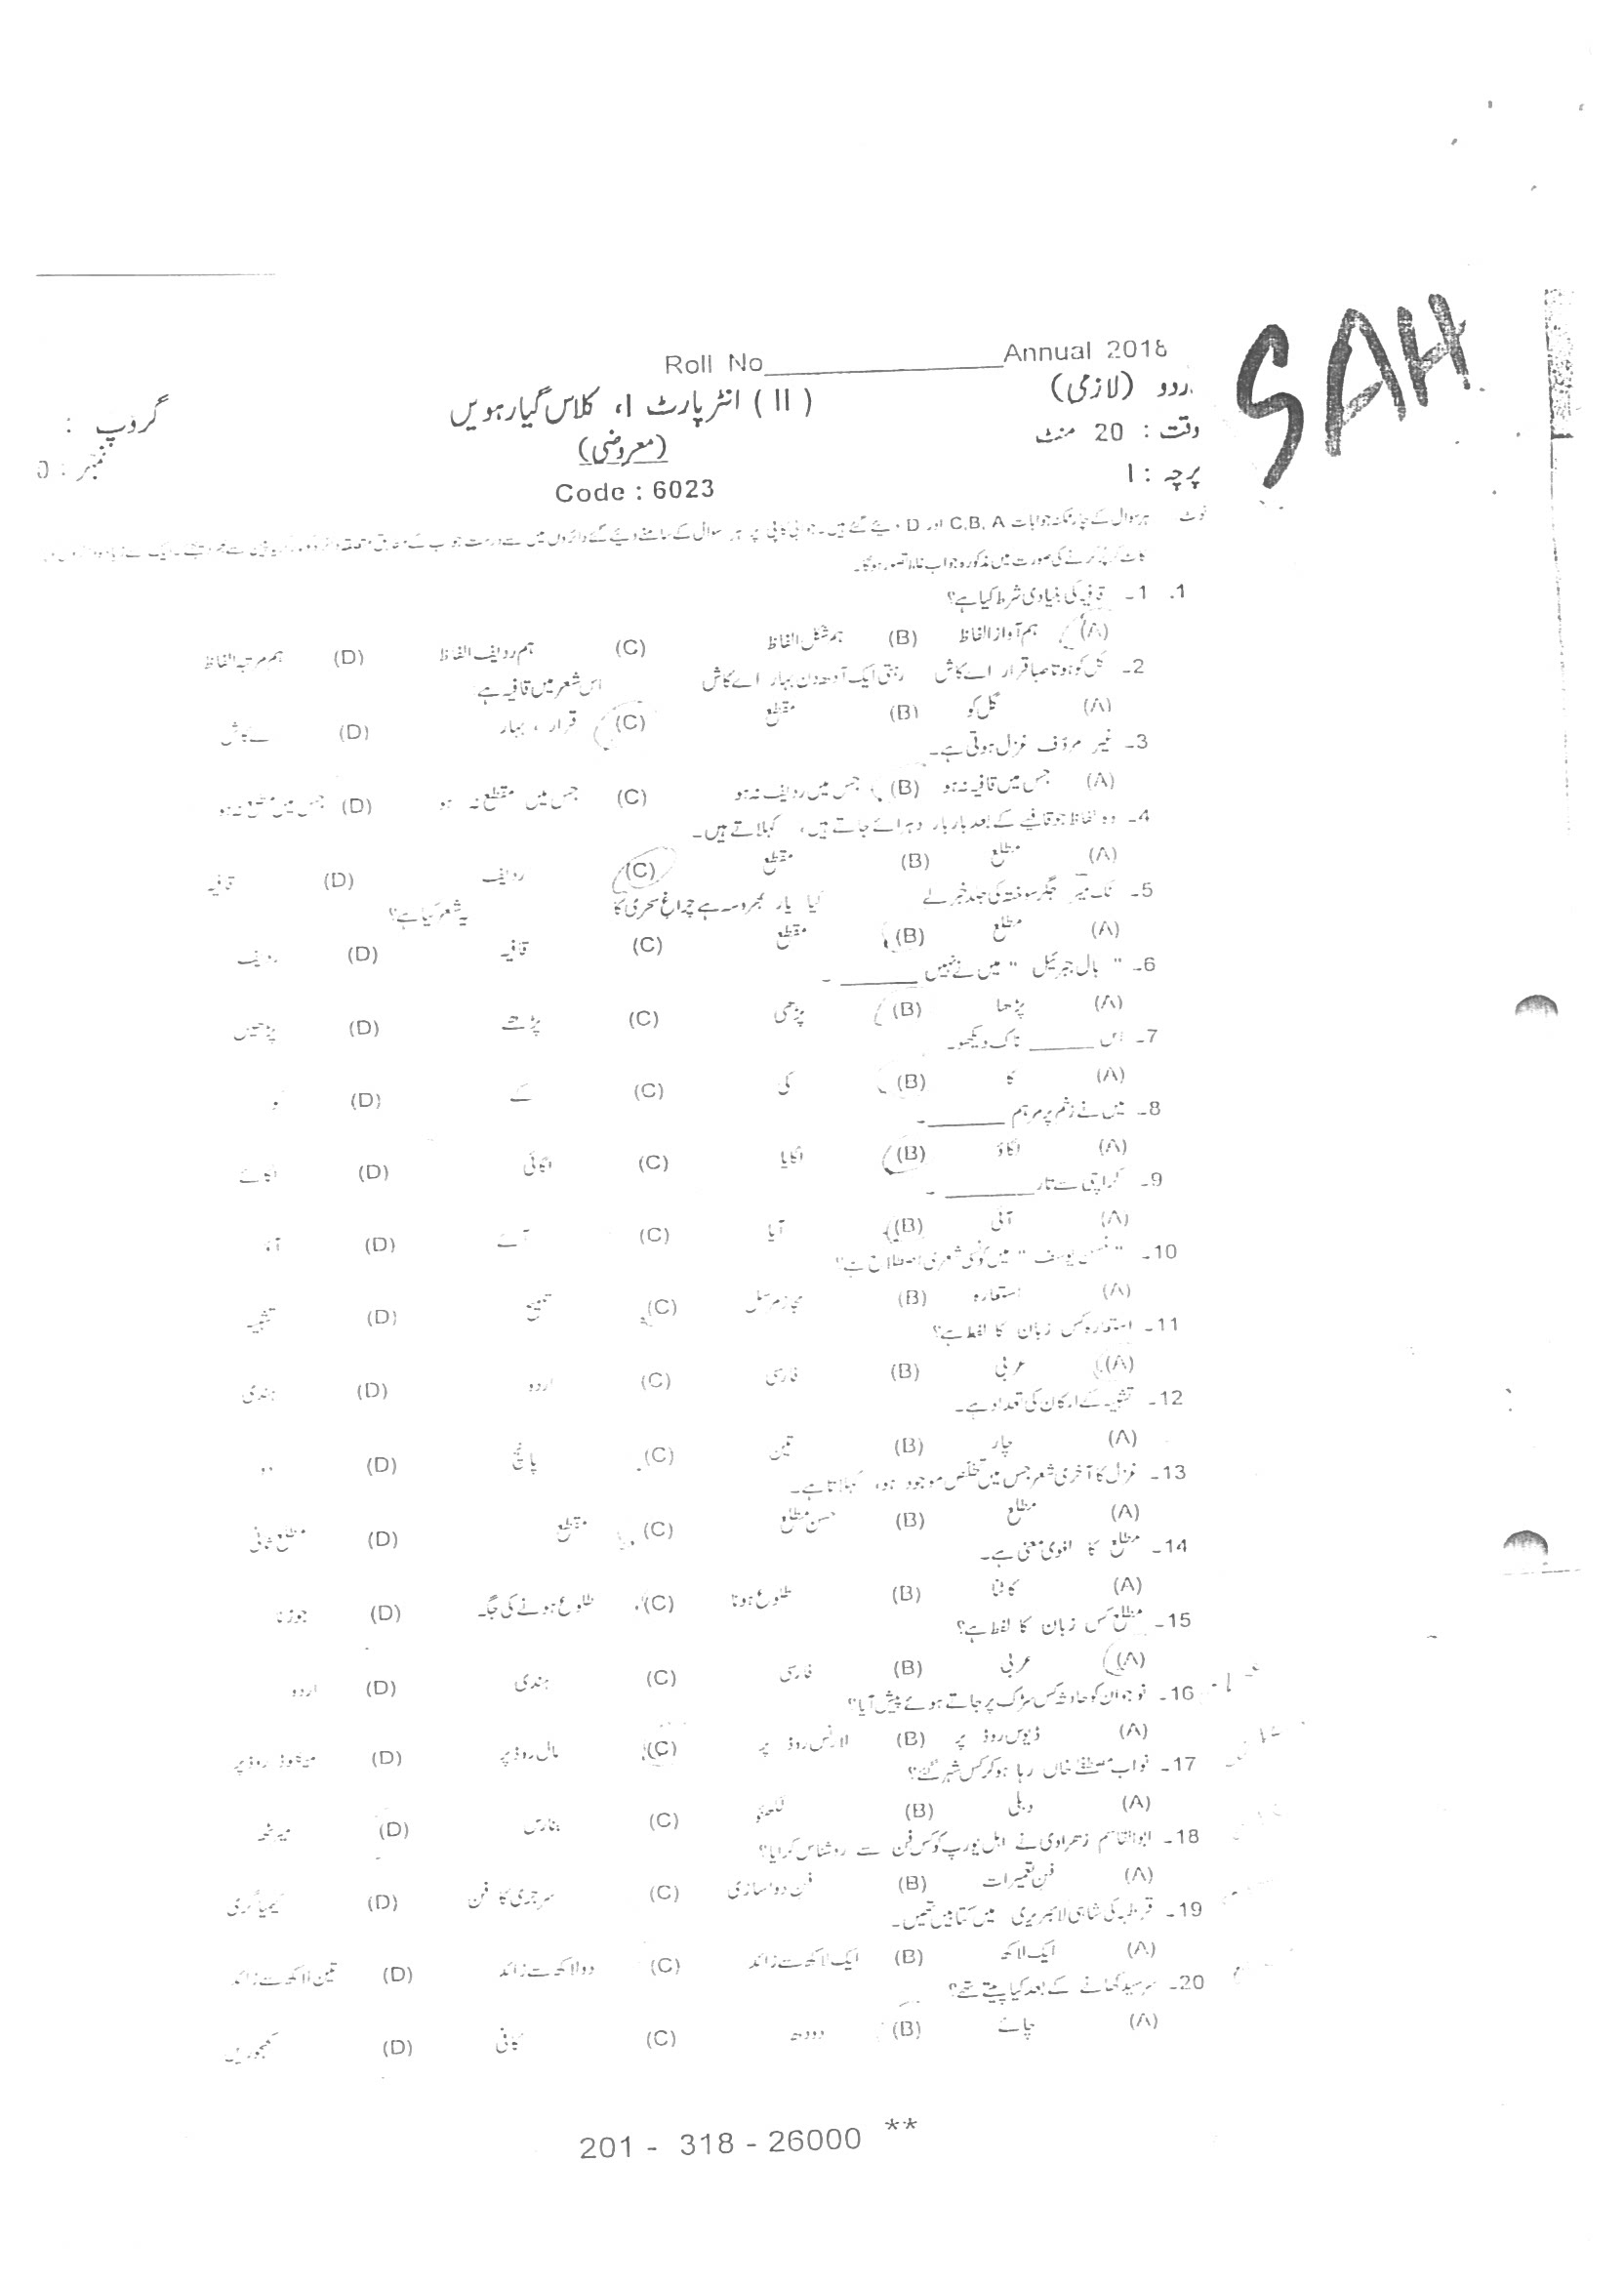 SAH
Roll No____________Annual 2018
اردو (لازمی)
(II) انٹر پارٹ I، کلاس گیارہویں
گروپ :
وقت : 20 منٹ
(معروضی)
نمبر : 0
پرچہ : I
Code : 6023
نوٹ ہر سوال کے چار ممکنہ جوابات C,B,A اور D دیئے گئے ہیں۔ جوابی کاپی پر ہر سوال کے سامنے دیئے گئے دائروں میں سے درست جواب کے مطابق متعلقہ
کاٹ کر پُر کرنے کی صورت میں مذکورہ جواب غلط تصور ہوگا۔
1. 1۔ قافیہ کی بنیادی شرط کیا ہے؟
(A) ہم آواز الفاظ (B) ہم شکل الفاظ (C) ہم ردیف الفاظ (D) ہم مرتبہ الفاظ
2۔ گل کو ہوتا صبا قرار اے کاش رہتی ایک آدھ دن بہار اے کاش اس شعر میں قافیہ ہے
(A) گل کو (B) مقطع (C) قرار ، بہار (D) کاش
3۔ غیر مردّف غزل ہوتی ہے۔
(A) جس میں قافیہ نہ ہو (B) جس میں ردیف نہ ہو (C) جس میں مقطع نہ ہو (D) جس میں نہ ہو
4۔ وہ الفاظ جو قافیے کے بعد بار بار دہرائے جاتے ہیں، کہلاتے ہیں۔
(A) مطلع (B) مقطع (C) ردیف (D) قافیہ
5۔ ٹک میرؔ جگر سوختہ کی جلد خبر لے کیا یار بھروسہ ہے چراغ سحری کا یہ شعر کیا ہے؟
(A) مطلع (B) مقطع (C) قافیہ (D) ردیف
6۔ " بال جبرئیل " میں نے نہیں ______ ۔
(A) پڑھا (B) پڑھی (C) پڑھے (D) پڑھیں
7۔ اس _____ ناک دیکھو۔
(A) کا (B) کی (C) کے (D)
8۔ میں نے زخم پر مرہم ______۔
(A) لگاؤ (B) لگایا (C) لگائی (D) لگائے
9۔ کراچی سے تار_______ ۔
(A) آئی (B) آیا (C) آئے (D)
10۔ " حسن یوسف " میں کونسی شعری اصطلاح ہے؟
(A) استعارہ (B) مجاز مرسل (C) تلمیح (D) تشبیہ
11۔ استعارہ کس زبان کا لفظ ہے؟
(A) عربی (B) فارسی (C) اردو (D) ہندی
12۔ تشبیہ کے ارکان کی تعداد ہے۔
(A) چار (B) تین (C) پانچ (D) دو
13۔ غزل کا آخری شعر جس میں تخلص موجود ہو، کہلاتا ہے۔
(A) مطلع (B) حسن مطلع (C) مقطع (D) مطلع ثانی
14۔ مطلع کا لغوی معنی ہے۔
(A) کاٹنا (B) طلوع ہونا (C) طلوع ہونے کی جگہ (D) جوڑنا
15۔ مطلع کس زبان کا لفظ ہے؟
(A) عربی (B) فارسی (C) ہندی (D) اردو
16۔ نوجوان کو حادثہ کس سڑک پر جاتے ہوئے پیش آیا؟
(A) ڈیوس روڈ پر (B) لارنس روڈ پر (C) مال روڈ پر (D) میکلوڈ روڈ پر
17۔ نواب مصطفےٰ خاں رہا ہو کر کس شہر گئے؟
(A) دہلی (B) لکھنؤ (C) بنارس (D) میرٹھ
18۔ ابوالقاسم زھراوی نے اہل یورپ کو کس فن سے روشناس کرایا؟
(A) فن تعمیرات (B) فن دوا سازی (C) سرجری کا فن (D) کیمیا گری
19۔ قرطبہ کی شاہی لائبریری میں کتابیں تھیں۔
(A) ایک لاکھ (B) ایک لاکھ سے زائد (C) دو لاکھ سے زائد (D) تین لاکھ سے زائد
20۔ سرسید کھانے کے بعد کیا پیتے تھے؟
(A) چائے (B) دودھ (C) کافی (D)
201 - 318 - 26000 **